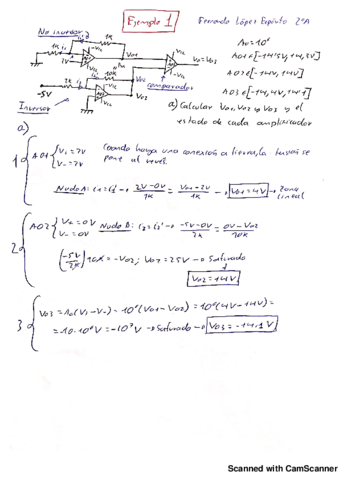 Ejemplo 1
Fernando López Expósito 2ºA
No inversor
1k
1k
i1
2V
-Vcc
+Vcc
Vo1
Vo=Vo3
comparador
10k
2k
-5V
Inversor
Vo2
Ao=10⁶
AO1∈[-14'5V, 14,5V]
AO2∈[-14V, 14V]
AO3∈[-14,1V, 14V1]
a) Calcular Vo1, Vo2 y Vo3 y el
estado de cada amplificador
a)
1 AO1 V+=2V
V-=2V
Cuando haya una conexión a tierra, la tensión se
pone al revés.
Nudo A: i1=i1' → 2V-0V / 1k = Vo1-2V / 1k → Vo1=4V → Zona
lineal
2 AO2 V+=0V
V-=0V
Nudo B: i2=i2' → -5V-0V / 2k = 0V-Vo2 / 10k
(-5V / 2k) 10k = -Vo2; Vo2=25V → Saturado
Vo2=14V
3 Vo3=Ao(V+-V-)=10⁶(Vo1-Vo2)=10⁶(4V-14V)=
=-10·10⁶V=-10⁷V → Saturado → Vo3=-14.1V
Scanned with CamScanner